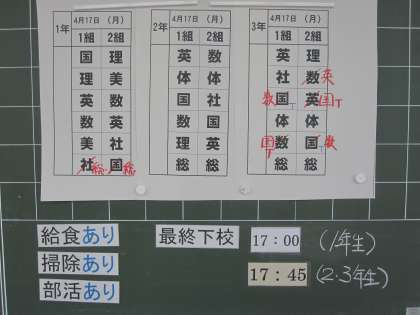 1年 4月17日 (月)
1組 2組
国 理
理 美
英 数
数 英
美 社
社 国
総 総
2年 4月17日 (月)
1組 2組
英 数
体 体
国 社
数 国
理 英
総 総
3年 4月17日 (月)
1組 2組
英 理
社 数 英
数 国T 英 国T
体 体
国T 数 国 数
総 総
給食あり
掃除あり
部活あり
最終下校
17:00 (1年生)
17:45 (2.3年生)